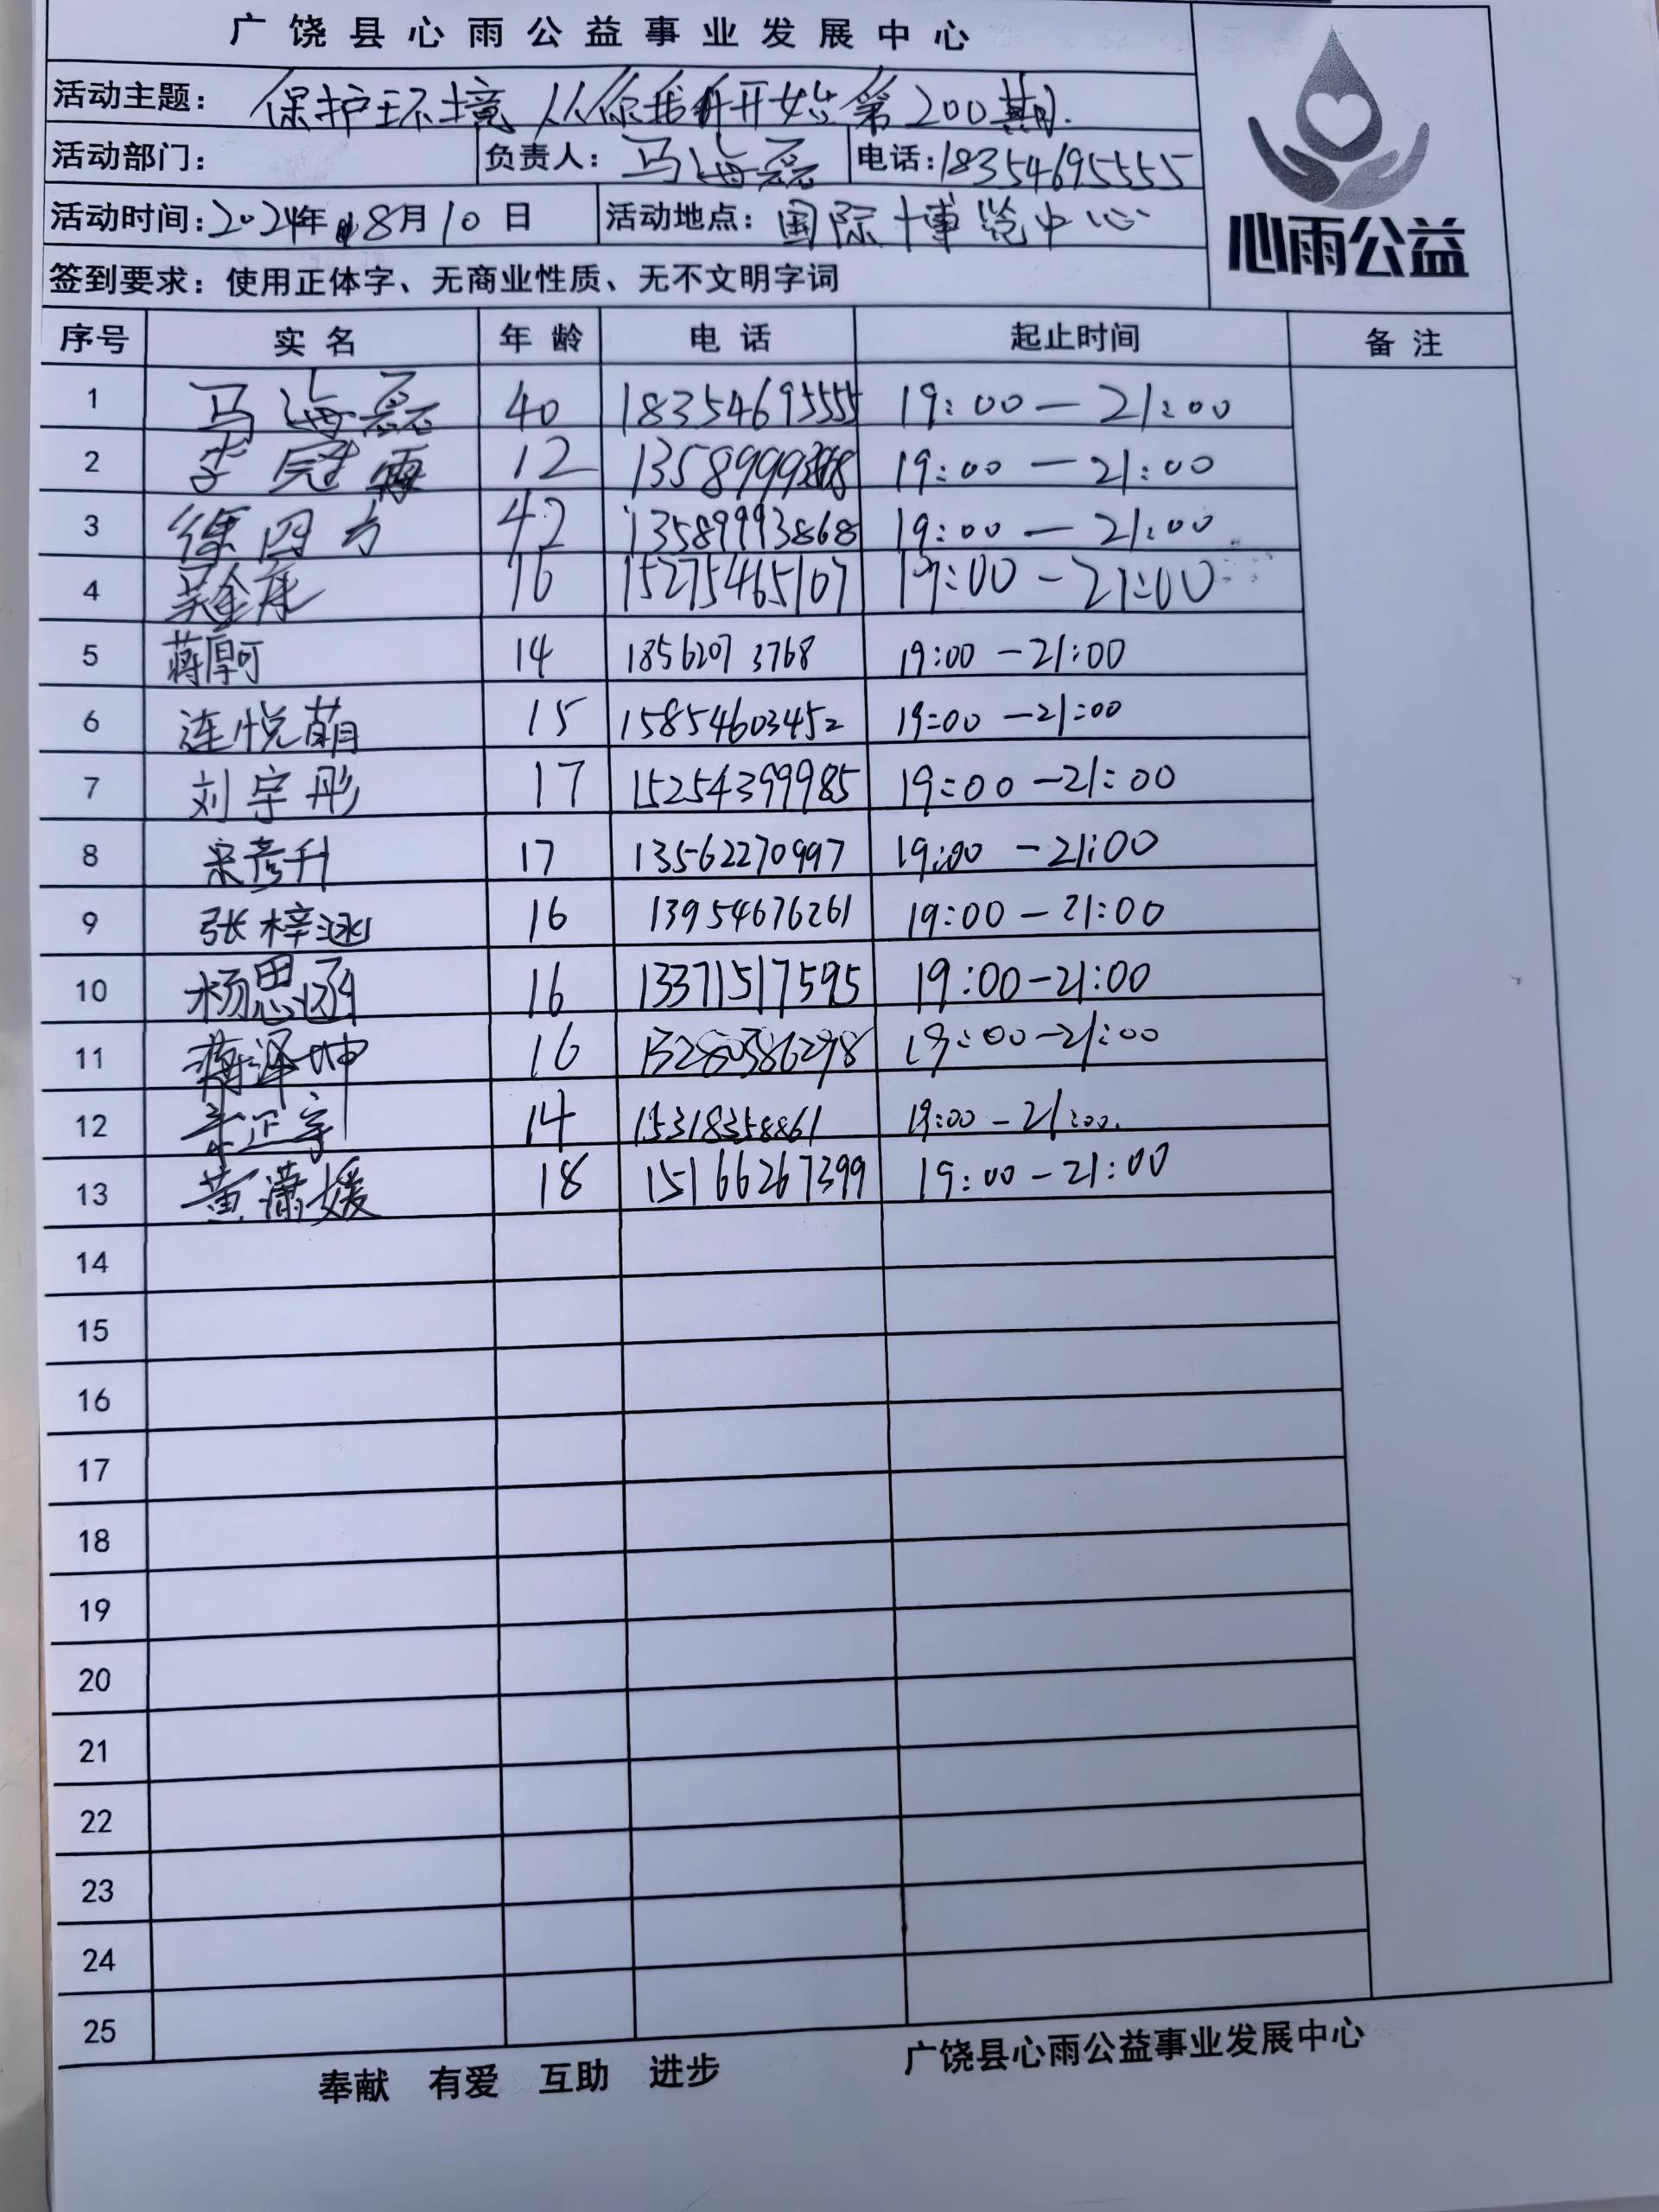 广饶县心雨公益事业发展中心
活动主题： 保护环境 从你我开始 第200期.
活动部门： 负责人：马海磊 电话：18354695555
活动时间：2024年8月10日 活动地点：国际博览中心
心雨公益
签到要求：使用正体字、无商业性质、无不文明字词
序号 实名 年龄 电话 起止时间 备注
1 马海磊 40 18354695555 19:00—21:00
2 李冠霖 12 19:00—21:00
3 徐四方 42 13589993868 19:00—21:00
4 吴金庭 16 15275465107 19:00-21:00
5 蒋厚可 14 18562073768 19:00-21:00
6 连悦萌 15 15854603452 19:00-21:00
7 刘宇彤 17 15254399985 19:00-21:00
8 宋彦升 17 13562270997 19:00-21:00
9 张梓涵 16 13954676261 19:00-21:00
10 杨思涵 16 13371517595 19:00-21:00
11 蒋泽坤 16 19:00-21:00
12 李正宇 14 15318358861 19:00-21:00.
13 黄潇媛 18 15166267399 19:00-21:00
14
15
16
17
18
19
20
21
22
23
24
25
奉献 有爱 互助 进步 广饶县心雨公益事业发展中心